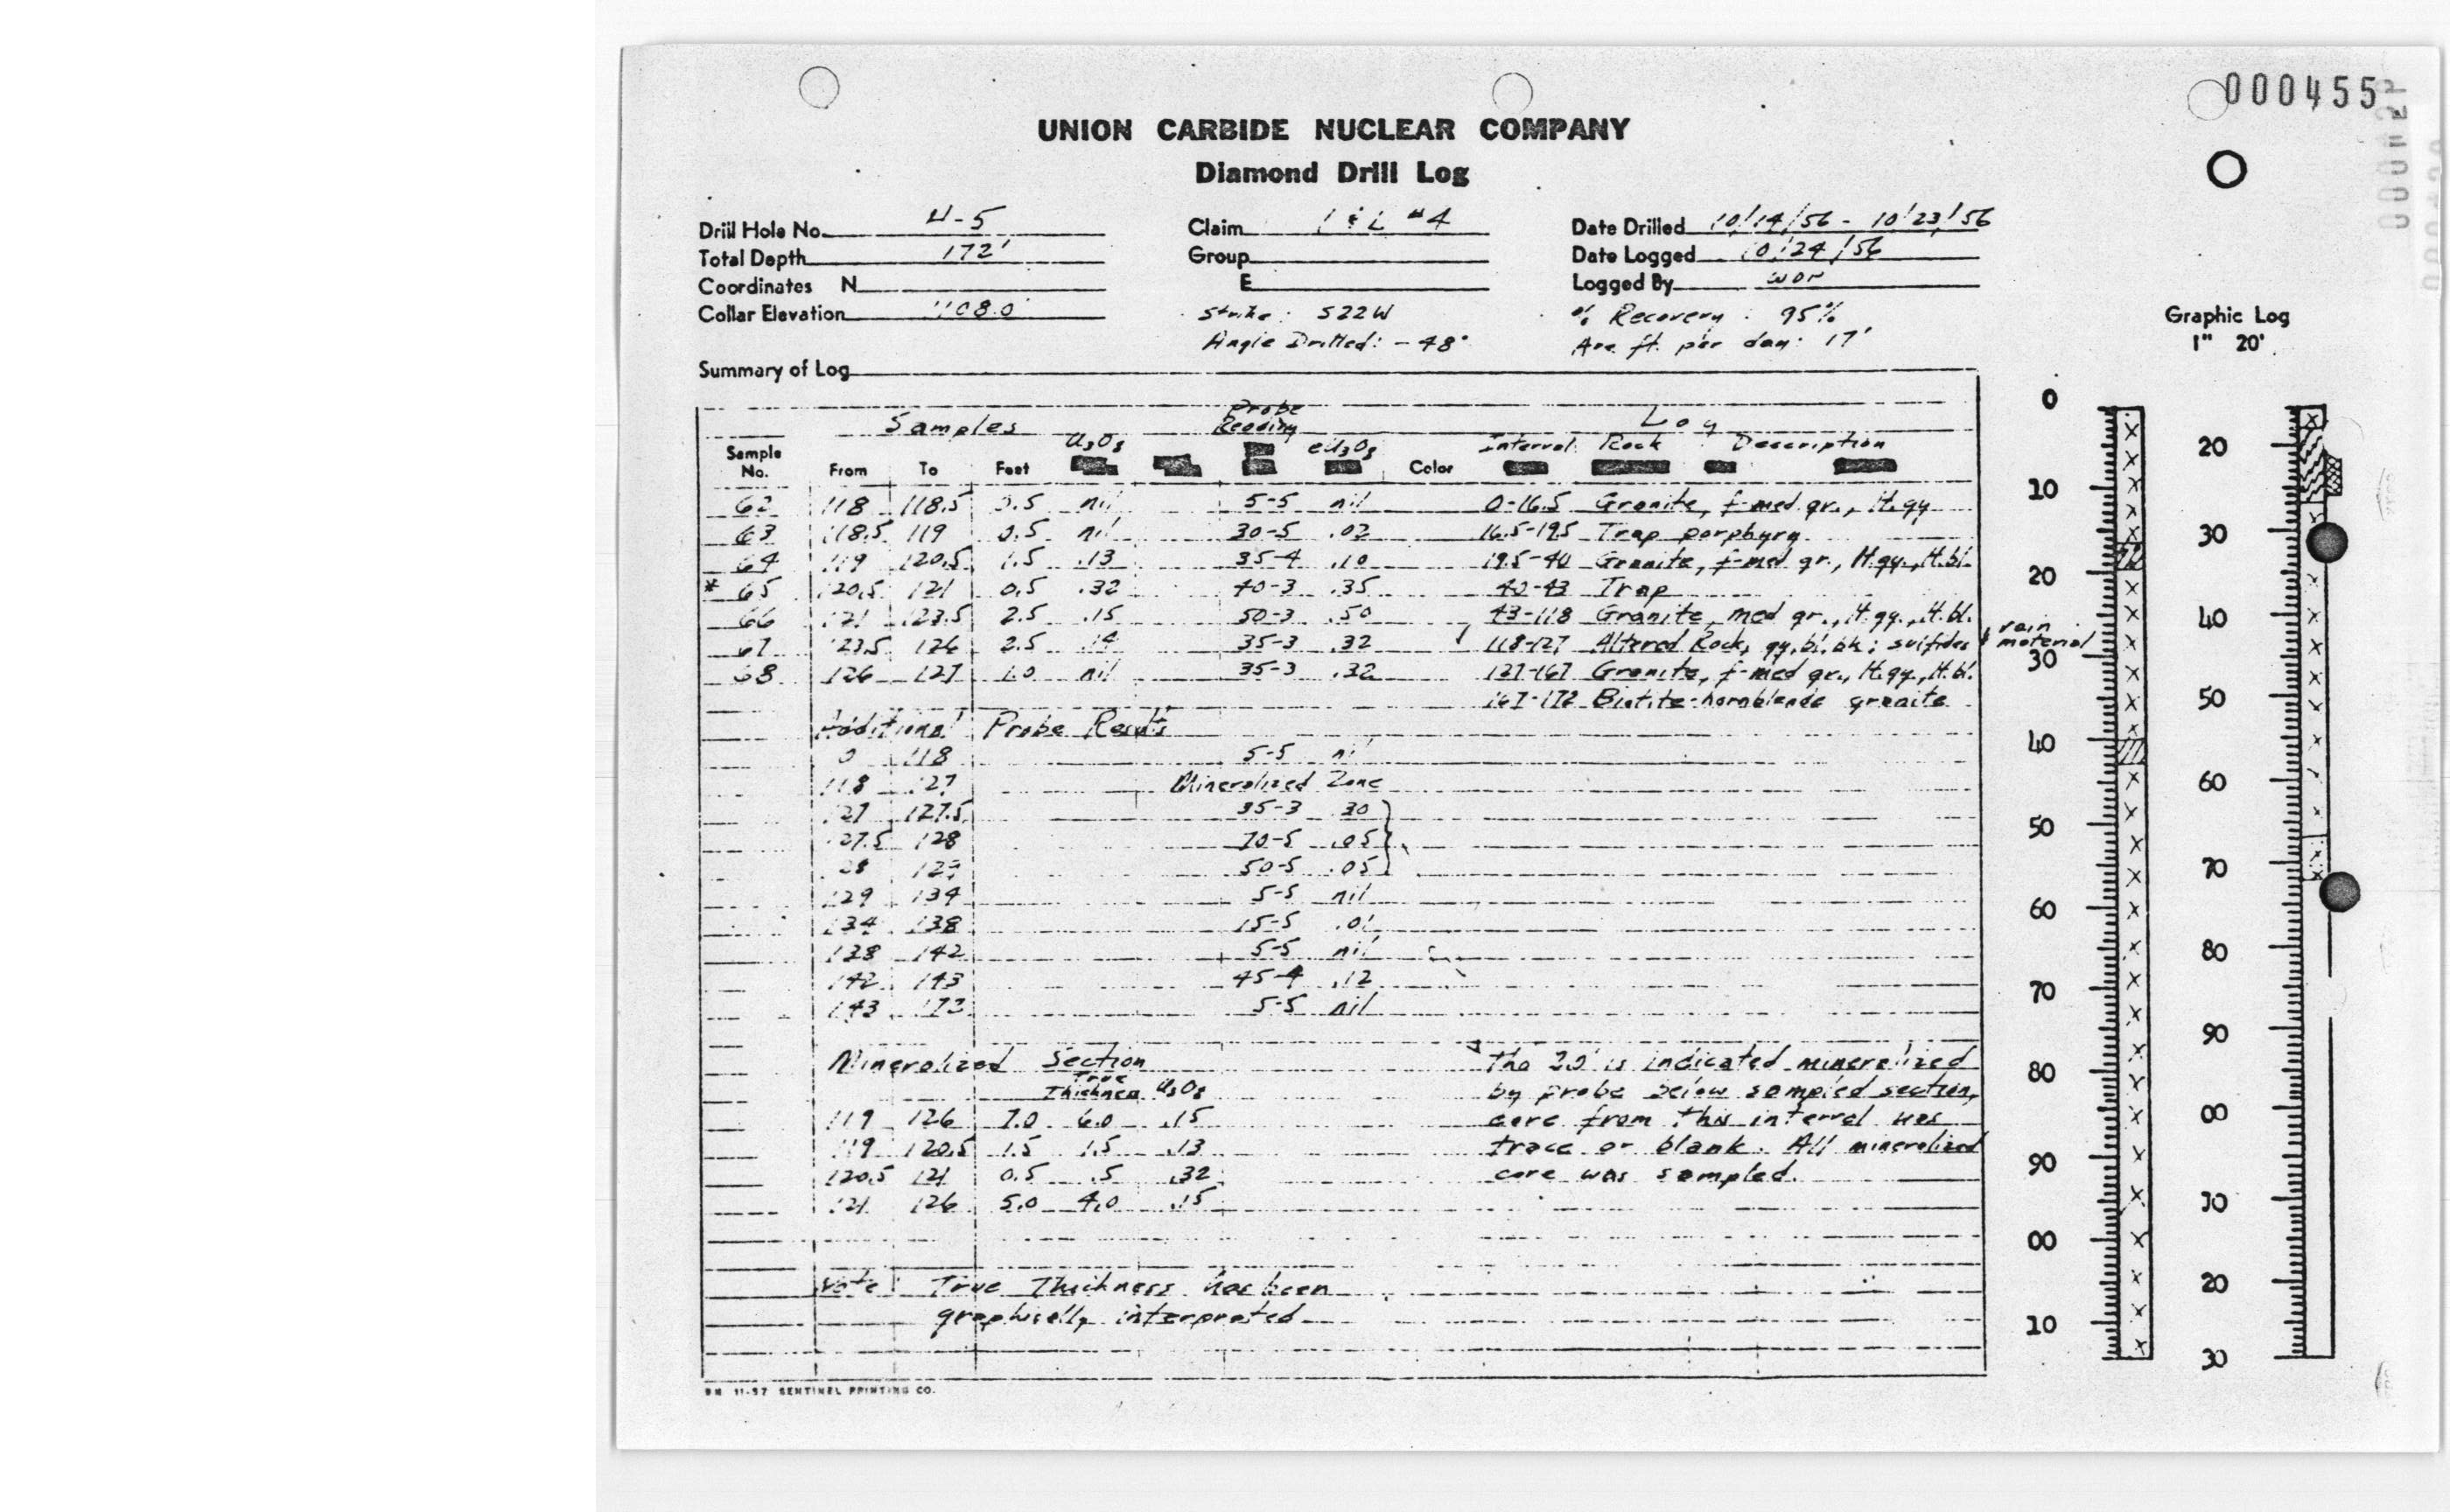 000455
UNION CARBIDE NUCLEAR COMPANY
Diamond Drill Log
Drill Hole No. U-5 Claim L & L #4 Date Drilled 10/14/56 - 10/23/56
Total Depth 172' Group Date Logged 10/24/56
Coordinates N E Logged By
Collar Elevation Strike: S22W % Recovery: 95%
Angle Drilled: -48° Ave. ft. per day: 17'
Graphic Log
1" 20'
Summary of Log
Samples Probe Reading Log
Sample No. From To Feet U3O8 eU3O8 Color Interval Rock Description
62 118 118.5 0.5 nil 5-5 nil 0-16.5 Granite, f-med gr., lt. gy
63 118.5 119 0.5 nil 30-5 .02 16.5-19.5 Trap porphyry
64 119 120.5 1.5 .13 35-4 .10 19.5-40 Granite, f-med gr., lt. gy., lt. bl.
* 65 120.5 121 0.5 .32 40-3 .35 40-43 Trap
66 121 123.5 2.5 .15 50-3 .50 43-118 Granite, med gr., lt. gy., lt. bl.
67 123.5 126 2.5 .14 35-3 .32 118-127 Altered Rock, gy, bl, bk; sulfides vein material
68 126 127 1.0 nil 35-3 .32 127-167 Granite, f-med gr., lt. gy., lt. bl.
167-172 Biotite-hornblende granite
Additional Probe Results
0 118 5-5 nil
118 127 Mineralized Zone
127 127.5 35-3 .30
127.5 128 70-5 .05
128 129 50-5 .05
129 134 5-5 nil
134 138 15-5 .01
138 142 5-5 nil
142 143 45-4 .12
143 172 5-5 nil
Mineralized Section
True Thickness U3O8
119 126 7.0 6.0 .15
119 120.5 1.5 1.5 .13
120.5 121 0.5 .5 .32
121 126 5.0 4.0 .15
Tho 2.0' is indicated mineralized
by probe below sampled section,
core from this interval was
trace or blank. All mineralized
core was sampled.
Note: True Thickness has been
graphically interpreted
9M 11-57 SENTINEL PRINTING CO.
0
10
20
30
40
50
60
70
80
90
00
10
20
30
40
50
60
70
80
90
00
10
20
30